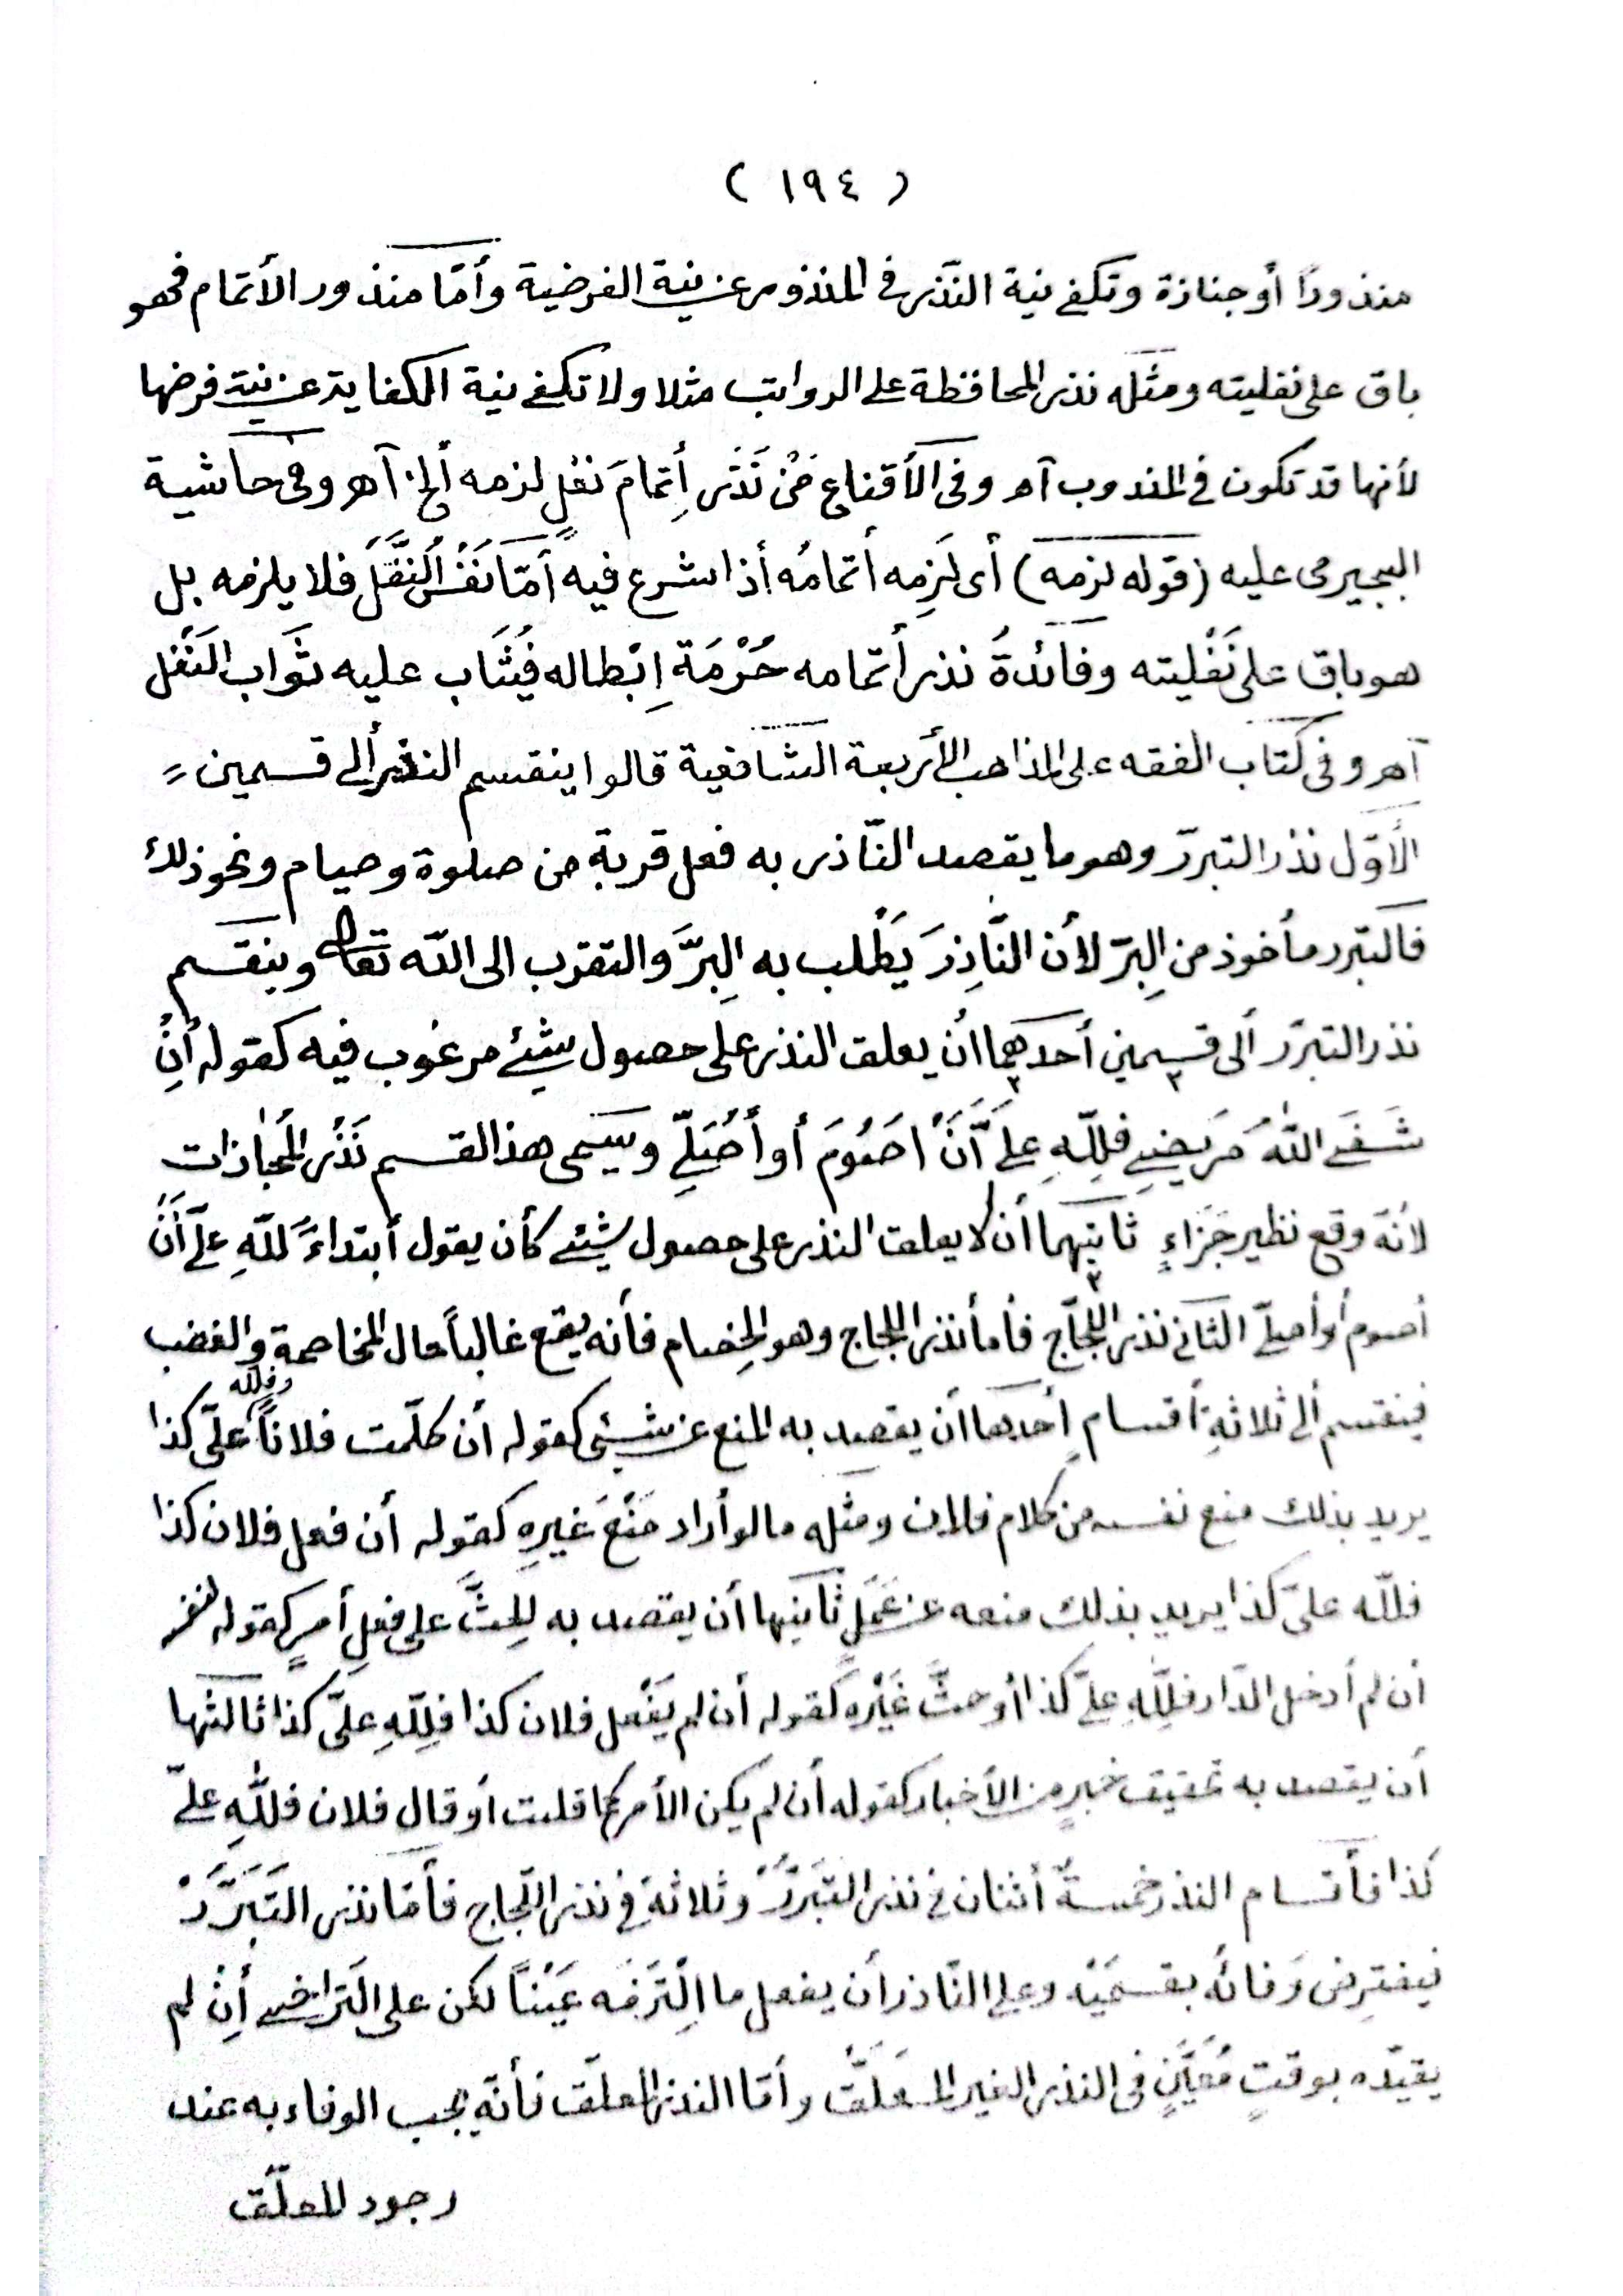 ( ١٩٤ )
منذورًا أو جنازة وتكفى نية النّذر فى المنذور عن نية الفرضية وأمّا منذور الأتمام فهو
باق على نفليته ومثله نذر المحافظة على الرواتب مثلا ولا تكفى نية الكفاية عن نية فرضها
لأنها قد تكون فى المندوب آهـ وفى الأقناع مَنْ نَذَرَ أِتمامَ نفلٍ لزمه ألخ آهـ وفى حاشية
البجيرمى عليه (قوله لزمه) أى لَزِمه أتمامُه أذا شرع فيه أمّا نَفْسُ النَّفْلِ فلا يلزمه بل
هو باق على نَفْليته وفائدةُ نذر أتمامه حُرْمَة اِبْطاله فيُثَاب عليه ثَواب النَفْل
آهـ وفى كتاب الفقه على المذاهب الأربعة الشافعية قالوا ينقسم النذر ألى قسمين =
الأوّل نذر التبرّر وهو ما يقصد النّاذر به فعل قربة من صلوة وصيام ونحو ذلك
فالتبرر مأخوذ من البِرّ لأن النَّاذِرَ يَطْلب به البِرَّ والتقرب الى الله تعالى وينقسم
نذر التبرّر ألى قسمين أحدهما أن يعلق النذر على حصول شيئ مرغوب فيه كقوله أِنْ
شَفَى اللهُ مَرِيضِى فلِلّهِ عَلَىَّ أَنْ اصَوُمَ أو أُصَلِّى ويسمى هذ القسم نَذْرَ المُجازات
لأنّه وقع نظير جَزَاءٍ ثانيهما أن لا يعلق النذر على حصول شيئ كأن يقول أبتداءً للّهِ علىَّ أَنْ
أصوم أو أصلىّ الثانى نذر اللجّاج فأما نذر اللجاج وهو الخِصام فأنه يقع غالباً حال المخاصمة والغضب
فينقسم ألى ثلاثةِ أقسامٍ أحدها أن يقصد به المنع عن شيئ كقوله أن كلّمت فلاناً فلله علىّ كذا
يريد بذلك منع نفسه من كلام فلان ومثله ما لو أراد مَنْعَ غيرِهِ كقوله أن فعل فلان كذا
فللّه علىّ كذا يريد بذلك منعه عن عَمَلٍ ثانيها أن يقصد به للحثَّ على فعلِ أمرٍ كقوله
أن لم أدخل الدّار فلِلّهِ علىّ كذا أو حثَّ غَيْرِهِ كقوله أن لم يَفْعل فلان كذا فلِلّهِ علىَّ كذا ثالثها
أن يقصد به تحقيق خبرٍ من الأخبار كقوله أن لم يكن الأمر كما قلت أو قال فلان فللّهِ علىّ
كذا فأقسام النذر خمسةٌ أثنان فى نذر التبَرُّرْ وثلاثة فى نذر اللّجاج فأمّا نذر التَبَرُّرْ
فيفترض وَفائُه بقسمَيْه وعلى النّاذر أن يفعل ما اِلْتَزَمَه عَيْناً لكن على التَراخى أِنْ لم
يقيّده بوقتٍ مُعَيَّنٍ فى النذر الغير المعَلَّق وأمّا النذر المعلّق فأنّه يجب الوفاء به عند
وجود المعلّق